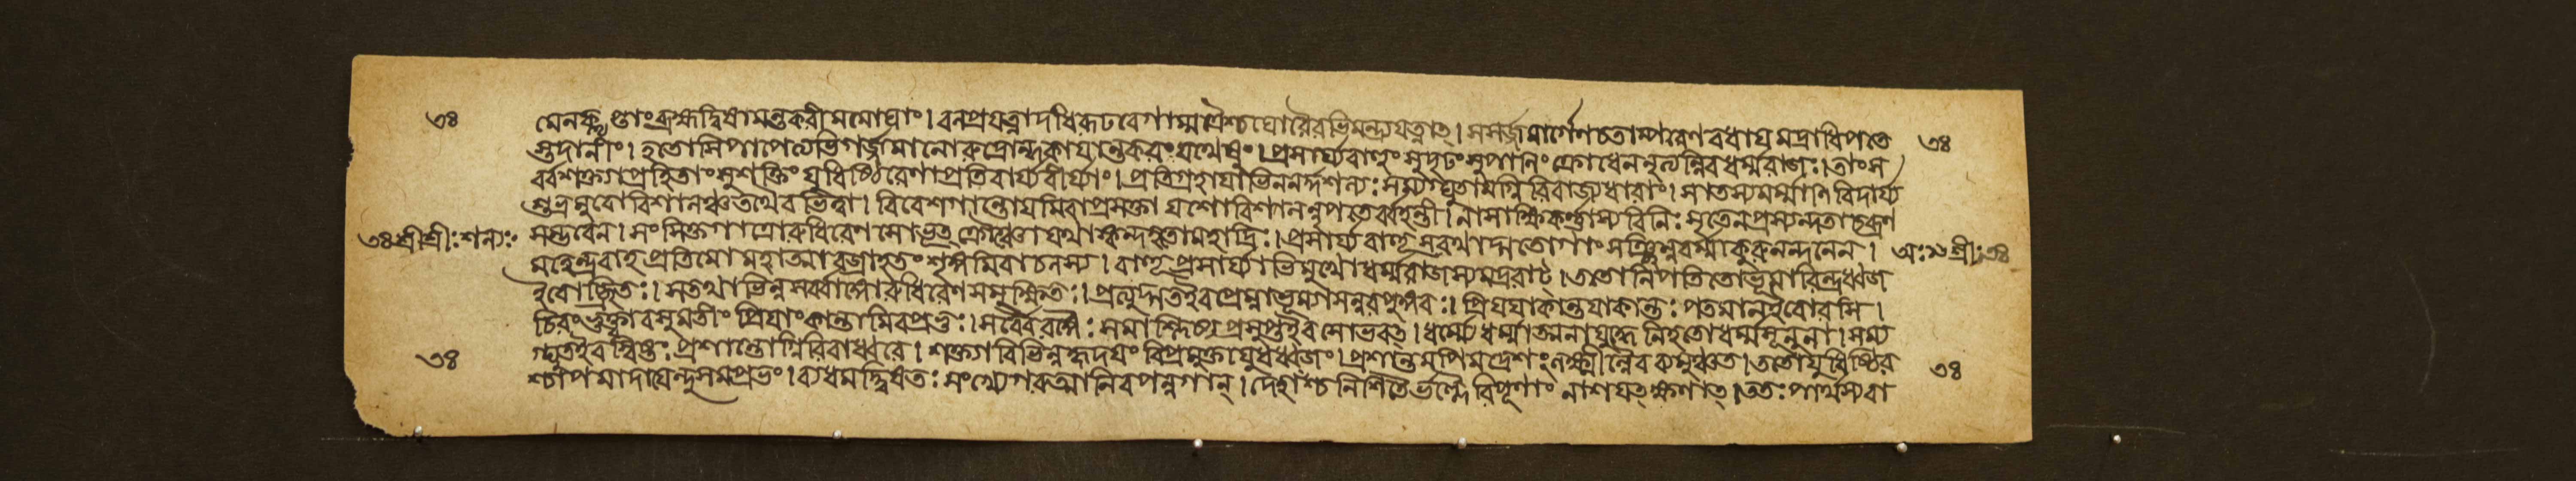 ৩৪ মেনঙ্কু ণ্ডাং ব্রহ্মদ্বিষামন্তকরীমমোঘাং। বনপ্রযত্নাদধিরূঢবেগাম্মন্ত্রৈশ্চঘোরৈরভিমন্ত্র্যযত্নাত্। সসর্জ্জমার্গেণচতাম্পরেণবধাযমদ্রাধিপতে ৩৪
স্তদানীং। হতোসিপাপেত্যভিগর্জ্জমানোরুদ্রোন্ধকাযান্তকরংযথেষুং। প্রসার্য্যবাহুংসুদৃঢংসুপাণিংক্রোধেননৃত্যন্নিবধর্ম্মরাজঃ। তাংস
র্ব্বশক্ত্যাপ্রহিতাংসুশক্তিংযুধিষ্ঠিরেণাপ্রতিবার্য্যবীর্য্যাং। প্রতিগ্রহাযাভিননর্দ্দশল্যঃ সম্যগ্ঘুতামগ্নিরিবাজ্যধারাং। সাতস্যমর্ম্মাণিবিদার্য্য
শুভ্রমুরোবিশালঞ্চতথৈবভিত্বা। বিবেশগান্তোযমিবাপ্রসক্তা যশোবিশালন্নৃপতের্ব্বহন্তী। নাসাক্ষিকর্ণ্ণাস্যবিনিঃ সৃতেনপ্রস্যন্দতাচব্রণ
৩৪ শ্রীশ্রীঃ শল্যঃ সম্ভবেন। সংসিক্তগাত্রোরুধিরেণসোভূত্ ক্রৌঞ্চোযথাস্কন্দহতোমহাদ্রিঃ। প্রসার্য্যবাহূসরথাদ্গতোগাং সঞ্ছিন্নবর্ম্মাকুরুনন্দনেন। অঃ ১৭ শ্রীঃ ৩৪
মহেন্দ্রবাহপ্রতিমোমহাত্মাবজ্রাহতংশৃঙ্গমিবাচলস্য। বাহূপ্রসার্য্যাভিমুখোধর্ম্মরাজস্যমদ্ররাট্। ততোনিপতিতোভূমাবিন্দ্রধ্বজ
ইবোচ্ছ্রিতঃ। সতথাভিন্নসর্ব্বাঙ্গোরুধিরেণসমুক্ষিতঃ। প্রত্যুদ্গতইবপ্রেম্নাভূম্যাসনরপুঙ্গবঃ। প্রিযযাকান্তযাকান্তঃ পতমানইবোরসি।
চিরংভুক্ত্বাবসুমতীং প্রিযাংকান্তামিবপ্রভুঃ। সর্ব্বৈরঙ্গৈঃ সমাশ্লিষ্য প্রসুপ্তইবসোভবত্। ধর্ম্যেধর্ম্মাত্মনাযুদ্ধেনিহতোধর্ম্মসূনুনা। সম্য
৩৪ গ্ঘুতইবস্বিষ্টঃ প্রশান্তোগ্নিরিবাধ্বরে। শক্ত্যাবিভিন্নহৃদযং বিপ্রমুক্তাযুধধ্বজং। প্রশান্তমপিমদ্রেশংলক্ষ্মীর্ন্নৈবব্যমুঞ্চত। ততোযুধিষ্ঠির ৩৪
শ্চাপমাদাযেন্দ্রসমপ্রভং। ব্যধমদ্দ্বিষতঃ সংখ্যেগরুত্মানিবপন্নগান্। দেহাংশ্চনিশিতৈর্ভল্লৈরিপূণাং নাশযত্ক্ষণাত্। ততঃ পার্থস্যবা